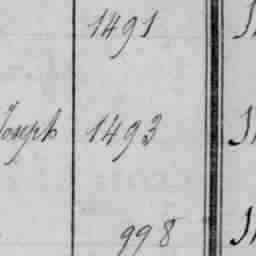 1491
Joseph 1493
998